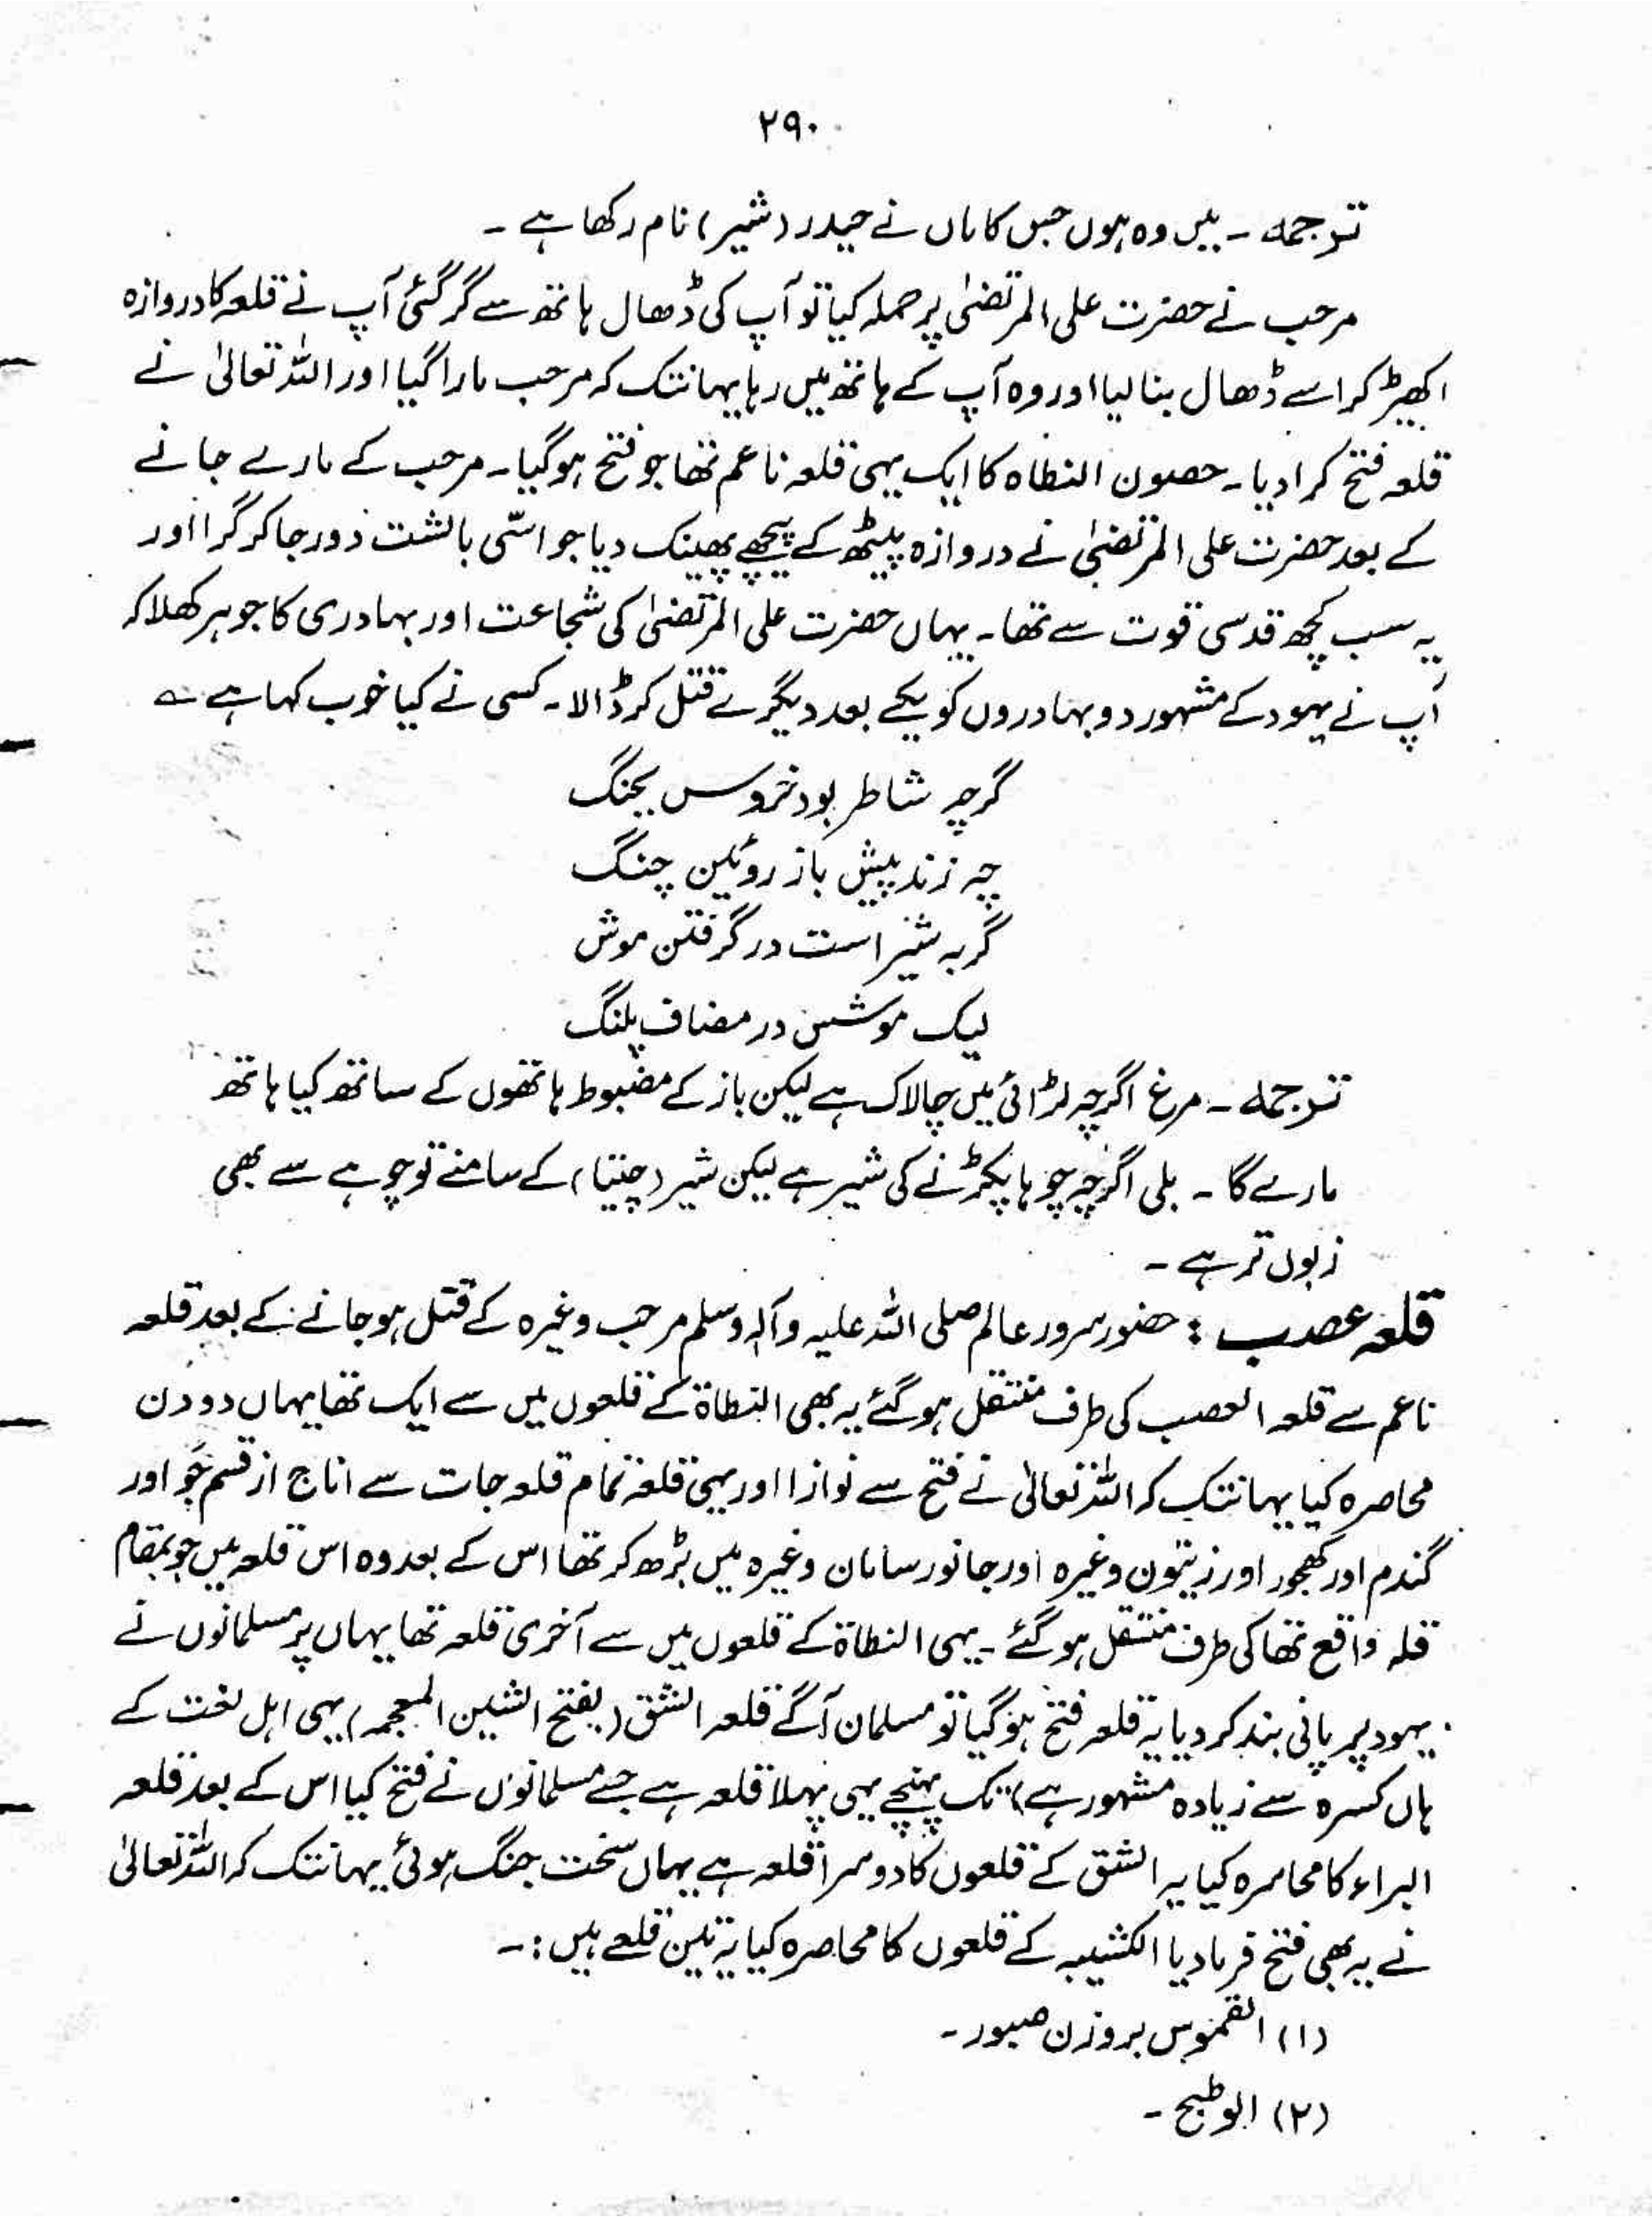 ۲۹۰
ترجمہ ۔ میں وہ ہوں جس کا ماں نے حیدر (شیر) نام رکھا ہے ۔
مرحب نے حضرت علی المرتضیٰ پر حملہ کیا تو آپ کی ڈھال ہاتھ سے گر گئی آپ نے قلعہ کا دروازہ
اکھیڑ کر اسے ڈھال بنا لیا اور وہ آپ کے ہاتھ میں رہا یہانتک کہ مرحب مارا گیا اور اللہ تعالیٰ نے
قلعہ فتح کرا دیا ۔ حصون النطاہ کا ایک یہی قلعہ ناعم تھا جو فتح ہو گیا ۔ مرحب کے مارے جانے
کے بعد حضرت علی المرتضیٰ نے دروازہ پیٹھ کے پیچھے پھینک دیا جو اسّی بالشت دور جا کر گرا اور
یہ سب کچھ قدسی قوت سے تھا ۔ یہاں حضرت علی المرتضیٰ کی شجاعت اور بہادری کا جوہر کھلا کہ
آپ نے یہود کے مشہور دو بہادروں کو یکے بعد دیگرے قتل کر ڈالا ۔ کسی نے کیا خوب کہا ہے ؎
گرچہ شاطر بود خروس بجنگ
چہ زند پیش باز روئین چنگ
گربہ شیر است در گرفتن موش
لیک موشس در مصاف پلنگ
ترجمہ ۔ مرغ اگرچہ لڑائی میں چالاک ہے لیکن باز کے مضبوط ہاتھوں کے ساتھ کیا ہاتھ
مارے گا ۔ بلی اگرچہ چوہا پکڑنے کی شیر ہے لیکن شیر (چیتا) کے سامنے تو چوہے سے بھی
زبوں تر ہے ۔
قلعہ عصب : حضور سرور عالم صلی اللہ علیہ وآلہ وسلم مرحب وغیرہ کے قتل ہو جانے کے بعد قلعہ
ناعم سے قلعہ العصب کی طرف منتقل ہو گئے یہ بھی النطاۃ کے قلعوں میں سے ایک تھا یہاں دو دن
محاصرہ کیا یہانتک کہ اللہ تعالیٰ نے فتح سے نوازا اور یہی قلعہ تمام قلعہ جات سے اناج از قسم جَو اور
گندم اور کھجور اور زیتون وغیرہ اور جانور سامان وغیرہ میں بڑھ کر تھا اس کے بعد وہ اس قلعہ میں جو بمقام
قلہ واقع تھا کی طرف منتقل ہو گئے ۔ یہی النطاۃ کے قلعوں میں سے آخری قلعہ تھا یہاں پر مسلمانوں نے
یہود پر پانی بند کر دیا یہ قلعہ فتح ہو گیا تو مسلمان آگے قلعہ الشق (بفتح الشین المعجمہ) یہی اہل لغت کے
ہاں کسرہ سے زیادہ مشہور ہے) تک پہنچے یہی پہلا قلعہ ہے جسے مسلمانوں نے فتح کیا اس کے بعد قلعہ
البراء کا محاصرہ کیا یہ الشق کے قلعوں کا دوسرا قلعہ ہے یہاں سخت جنگ ہوئی یہانتک کہ اللہ تعالیٰ
نے یہ بھی فتح فرما دیا الکشیبہ کے قلعوں کا محاصرہ کیا یہ تین قلعے ہیں :۔
(۱) القموس بروزن صبور ۔
(۲) الوطیح ۔